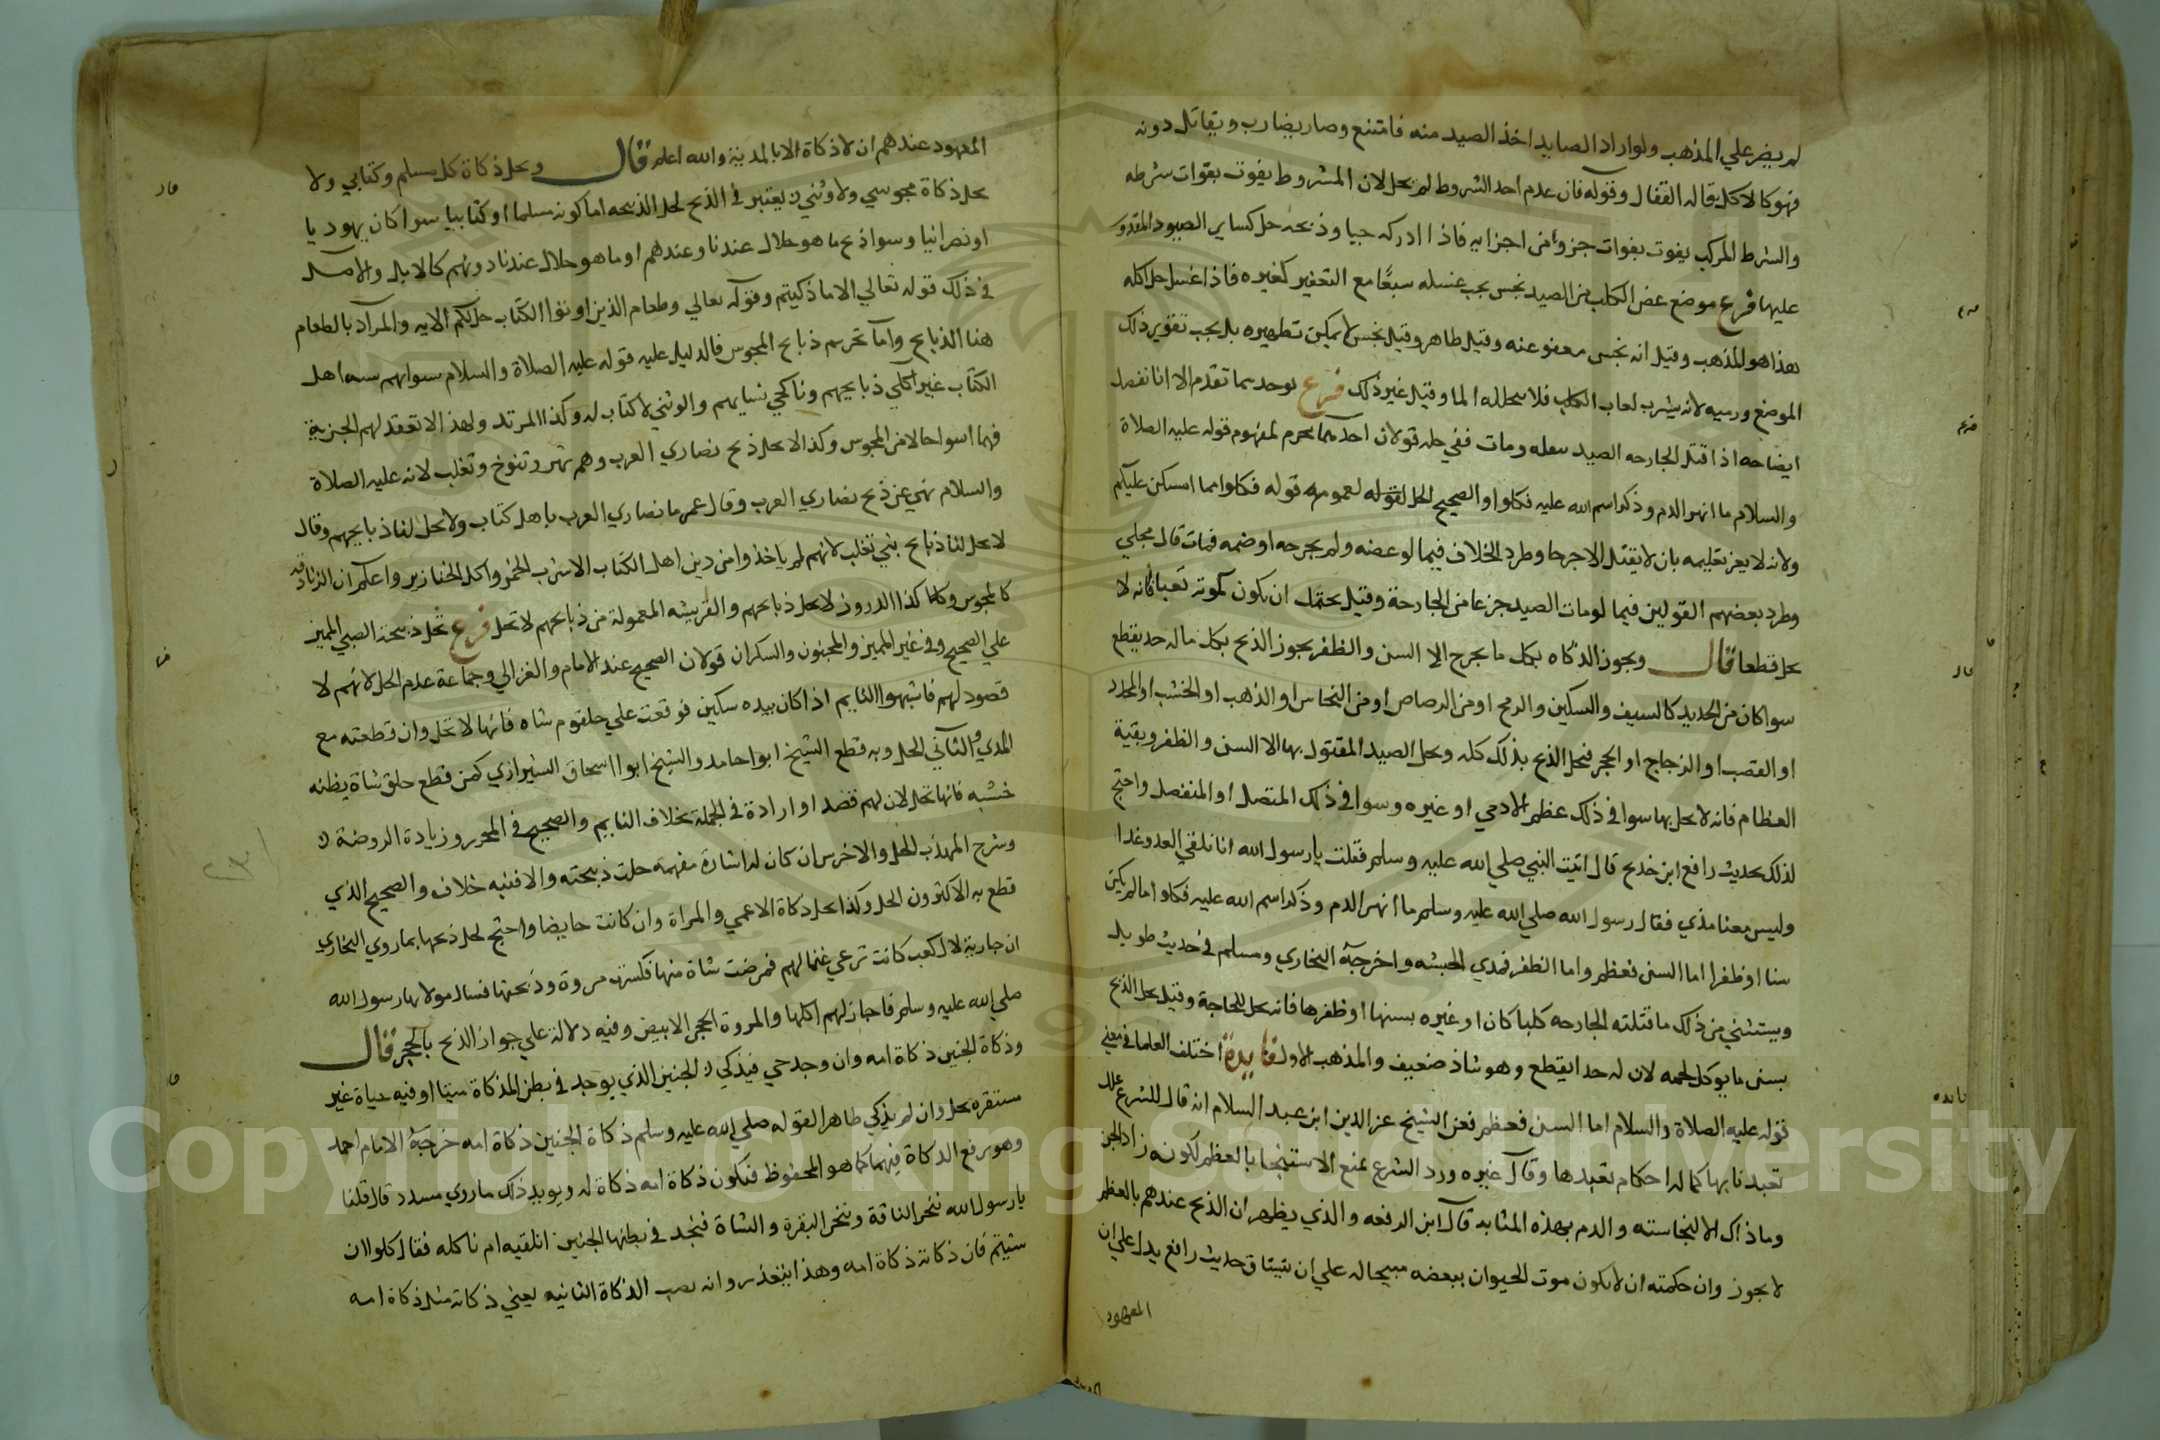 لم يضر علي المذهب ولو اراد الصايد اخذ الصيد منه فامتنع وصار يضارب ويقاتل دونه
فهو كالاكل قاله القفال وقوله فان عدم احد الشروط لم يحل لان المشروط يفوت بفوات شرطه
والشرط المركب يفوت بفوات جزو من اجزايه فاذا ادركه حيا وذبحه حل كساير الصيود المقدور
عليها فرع موضع عض الكلب من الصيد نجس يجب غسله سبعًا مع التعفير كغيره فاذا غسل حل اكله
هذا هو المذهب وقيل انه نجس معفو عنه وقيل طاهر وقيل نجس لا يمكن تطهيره بل يجب تقوير ذلك
الموضع ورميه لانه يشرب لعاب الكلب فلا يتخلله الما وقيل غير ذلك فرع يوخذ مما تقدم الا انا نفصل
ايضاحه اذا قتل الجارحه الصيد بثقله ومات ففي حله قولان احدهما يحرم لمفهوم قوله عليه الصلاة
والسلام ما انهر الدم وذكر اسم الله عليه فكلوا والصحيح الحل لقوله لعموم قوله فكلوا مما امسكن عليكم
ولانه لا يعز تعليمه بان لا يقتل الا جرحا وطرد الخلاف فيما لو عضه ولم يجرحه او ضمه فمات قال مجلي
وطرد بعضهم القولين فيما لو مات الصيد جزعا من الجارحة وقيل يحتمل ان يكون كموته تعبا فانه لا
يحل قطعا قال ويجوز الذكاه بكل ما يجرح الا السن والظفر يجوز الذبح بكل ما له حد يقطع
سوا كان من الحديد كالسيف والسكين والرمح او من الرصاص او من النحاس او الذهب او الخشب او المحدد
او القصب او الزجاج او الحجر فيحل الذبح بذلك كله ويحل الصيد المقتول بها الا السن والظفر وبقية
العظام فانه لا يحل بها سوا في ذلك عظم الادمي او غيره وسوا في ذلك المتصل او المنفصل واحتج
لذلك بحديث رافع ابن خديج قال اتيت النبي صلي الله عليه وسلم فقلت يا رسول الله انا نلقي العدو غدا
وليس معنا مدي فقال رسول الله صلي الله عليه وسلم ما انهر الدم وذكر اسم الله عليه فكلوا ما لم يكن
سنا او ظفرا اما السن فعظم واما الظفر فمدي الحبشه واخرجه البخاري ومسلم في حديث طويل
ويستثني من ذلك ما قتلته الجارحه كلبا كان او غيره بسنها او ظفرها فانه يحل للحاجة وقيل يحل الذبح
بسن ما يوكل لحمه لان له حدا يقطع وهو شاذ ضعيف والمذهب الاول فايدة اختلف العلما في معني
قوله عليه الصلاة والسلام اما السن فعظم فعن الشيخ عز الدين ابن عبد السلام انه قال للشرع علل
تعبدنا بها كما له احكام تعبدها وقال غيره ورد الشرع بمنع الاستنجا بالعظم لكونه زاد الجن
وما ذاك الا لنجاسته والدم بهذه المثابه قال ابن الرفعه والذي يظهر ان الذبح عندهم بالعظم
لا يجوز وان حكمته ان لا يكون موت الحيوان ببعضه مبيحا له علي ان سياق حديث رافع يدل علي ان
المعهود
المعهود عندهم ان لا ذكاة الا بالمدية والله اعلم قال ويحل ذكاة كل مسلم وكتابي ولا
يحل ذكاة مجوسي ولا وثني يعتبر في الذبح لحل الذبيحه اما كونه مسلما او كتابيا سوا كان يهوديا
او نصرانيا وسوا ذبح ما هو حلال عندنا وعندهم او ما هو حلال عندنا دونهم كالابل والاصل
في ذلك قوله تعالي الا ما ذكيتم وقوله تعالي وطعام الذين اوتوا الكتاب حل لكم الايه والمراد بالطعام
هنا الذبايح واما تحريم ذبايح المجوس فالدليل عليه قوله عليه الصلاة والسلام سنوا بهم سنه اهل
الكتاب غير اكلي ذبايحهم وناكحي نسايهم والوثني لا كتاب له وكذا المرتد ولهذا لا تعقد لهم الجزية
فهما اسوا حالا من المجوس وكذا لا يحل ذبح نصاري العرب وهم بهر وتنوخ وتغلب لانه عليه الصلاة
والسلام نهي عن ذبح نصاري العرب وقال عمر ما نصاري العرب باهل كتاب ولا يحل لنا ذبايحهم وقال
لا يحل لنا ذبايح بني تغلب لانهم لم ياخذوا من دين اهل الكتاب الا شرب الخمر واكل الخنازير واعلم ان الزنادقه
كالمجوس وكذا الدروز لا يحل ذبايحهم والقريشه المعمولة من ذبايحهم لا تحل فرع تحل ذبيحة الصبي المميز
علي الصحيح وفي غير المميز والمجنون والسكران قولان الصحيح عند الامام والغزالي وجماعة عدم الحل لانهم لا
قصود لهم فاشبهوا النايم اذا كان بيده سكين فوقعت علي حلقوم شاه فانها لا تحل وان قطعته مع
المري والثاني الحل وبه قطع الشيخ ابوا حامد والشيخ ابوا اسحاق الشيرازي كمن قطع حلق شاة يظنه
خشبه فانها تحل لان لهم قصد او ارادة في الجملة بخلاف النايم والصحيح في المحرر وزيادة الروضة
وشرح المهذب الحل والاخرس ان كان له اشارة مفهمة حلت ذبيحته والا ففيه خلاف والصحيح الذي
قطع به الاكثرون الحل وكذا يحل ذكاة الاعمي والمراة وان كانت حايضا واحتج لحل ذبحها بما روي البخاري
ان جارية لال كعب كانت ترعي غنما لهم فمرضت شاة منها فكسرت مروة وذبحتها فسال مولاها رسول الله
صلي الله عليه وسلم فاجاز لهم اكلها والمروة الحجر الابيض وفيه دلالة علي جواز الذبح بالحجر قال
وذكاة الجنين ذكاة امه وان وجد حي فيذكي الجنين الذي يوجد في بطن المذكاة ميتا او فيه حياة غير
مستقره يحل وان لم يذكي ظاهرا لقوله صلي الله عليه وسلم ذكاة الجنين ذكاة امه خرجه الامام احمد
وهو برفع الذكاة فيهما كما هو المحفوظ فتكون ذكاة امه ذكاة له ويويد ذلك ما روي مسدد قال قلنا
يا رسول الله ننحر الناقة وننحر البقرة والشاة فنجد في بطنها الجنين انلقيه ام ناكله فقال كلوا ان
شيتم فان ذكاته ذكاة امه وهذا يتعذر وانه نصب الذكاة الثانيه يعني ذكاته مثل ذكاة امه
Copyright © King Saud University